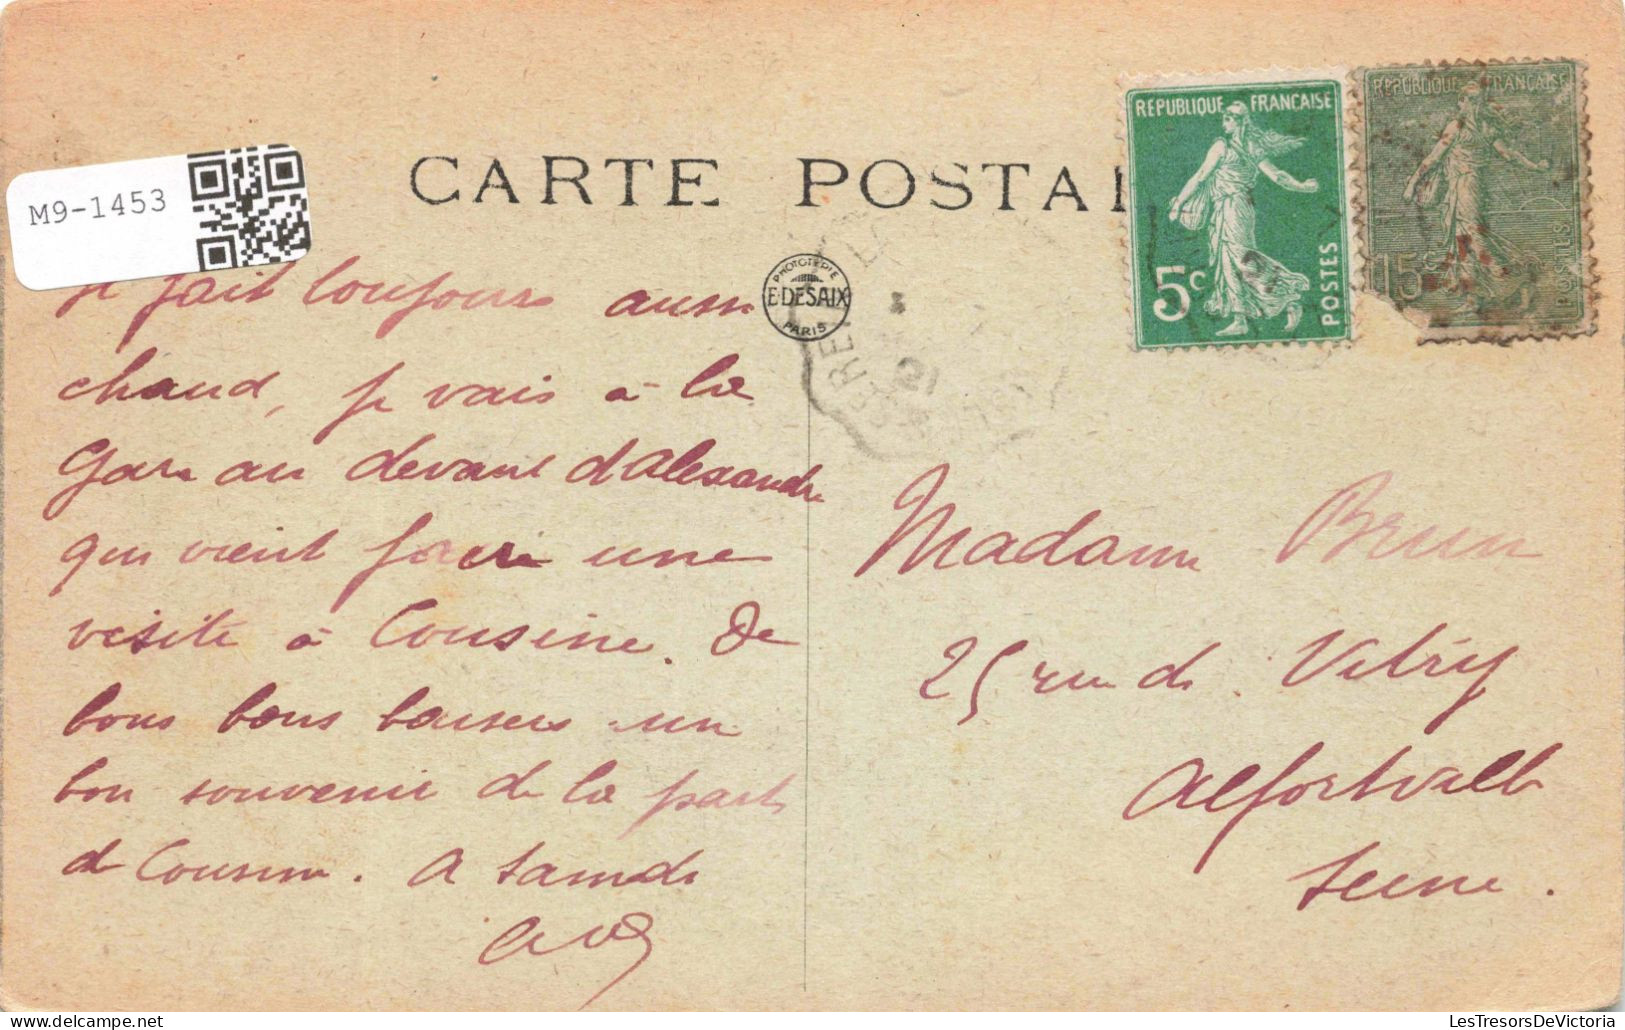 M9-1453
CARTE POSTAL
REPUBLIQUE FRANÇAISE
5c
POSTES
REPUBLIQUE FRANÇAISE
15c
POSTES
PHOTOTYPIE
E. DESAIX
PARIS
fait toujours aussi
chaud, je vais à la
Gare au devant d'Alexandre
qui vient faire une
visite à Cousine. De
bons bons baisers un
bon souvenir de la part
de Cousine. A samedi
Madame Brun
25 rue de Vitry
Alfortville
Seine.
LesTresorsDeVictoria